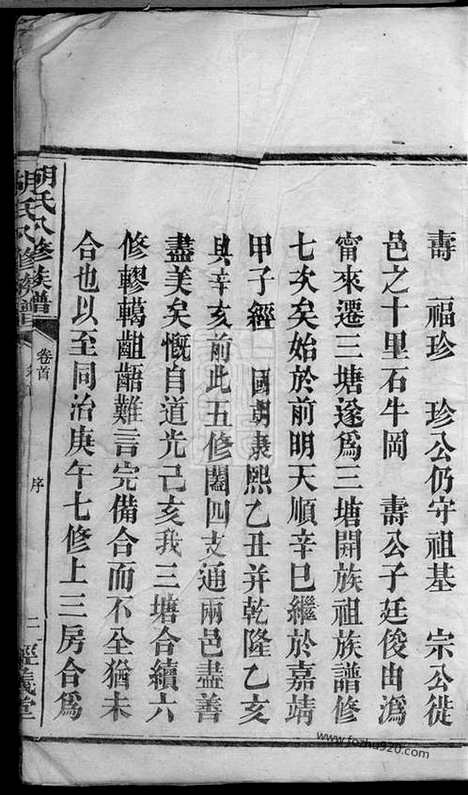 壽　福珍　珍公仍守祖基　宗公徙
邑之十里石牛岡　壽公子廷俊由溈
甯來遷三塘遂爲三塘開族祖族譜修
七次矣始於前明天順辛巳繼於嘉靖
甲子經　國朝康熙乙丑并乾隆乙亥
與辛亥前此五修闔四支通兩邑盡善
盡美矣慨自道光己亥我三塘合續六
修轇轕齟齬難言完備合而不全猶未
合也以至同治庚午七修上三房合爲
胡氏八修族譜
卷首
序
二
經義堂
www.fozhu920.com